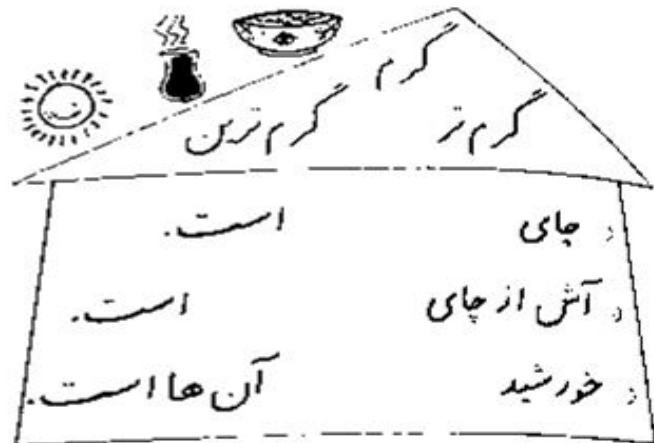 گرم
گرم تر
گرم ترین
چای است.
آش از چای است.
خورشید آن ها است.